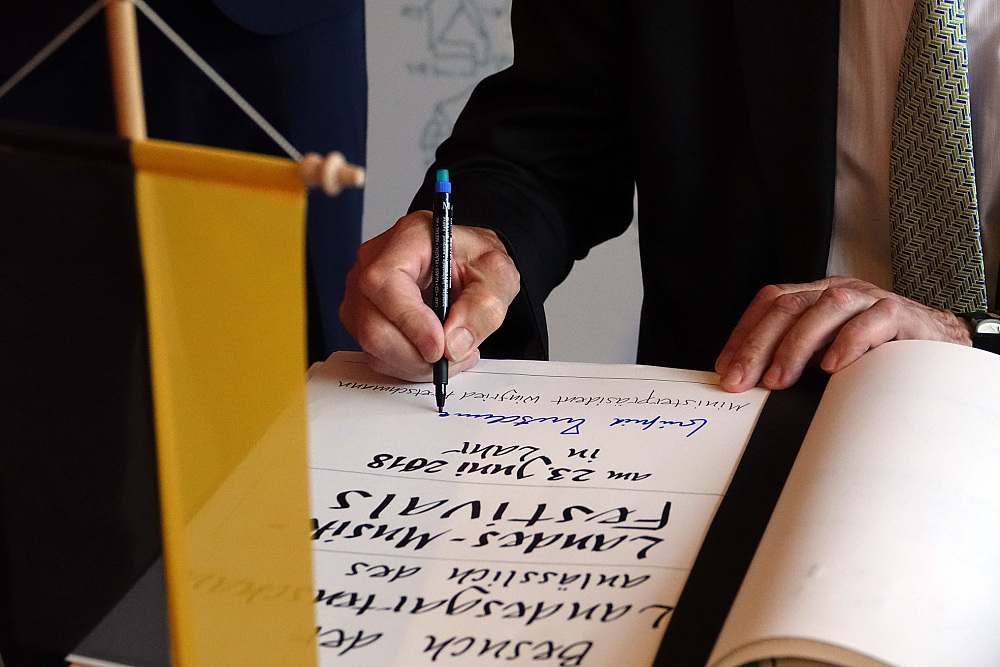 Besuch der
Landesgartenschau
anlässlich des
Landes-Musik-
Festivals
am 23. Juni 2018
in Lahr
Winfried Kretschmann
Ministerpräsident Winfried Kretschmann